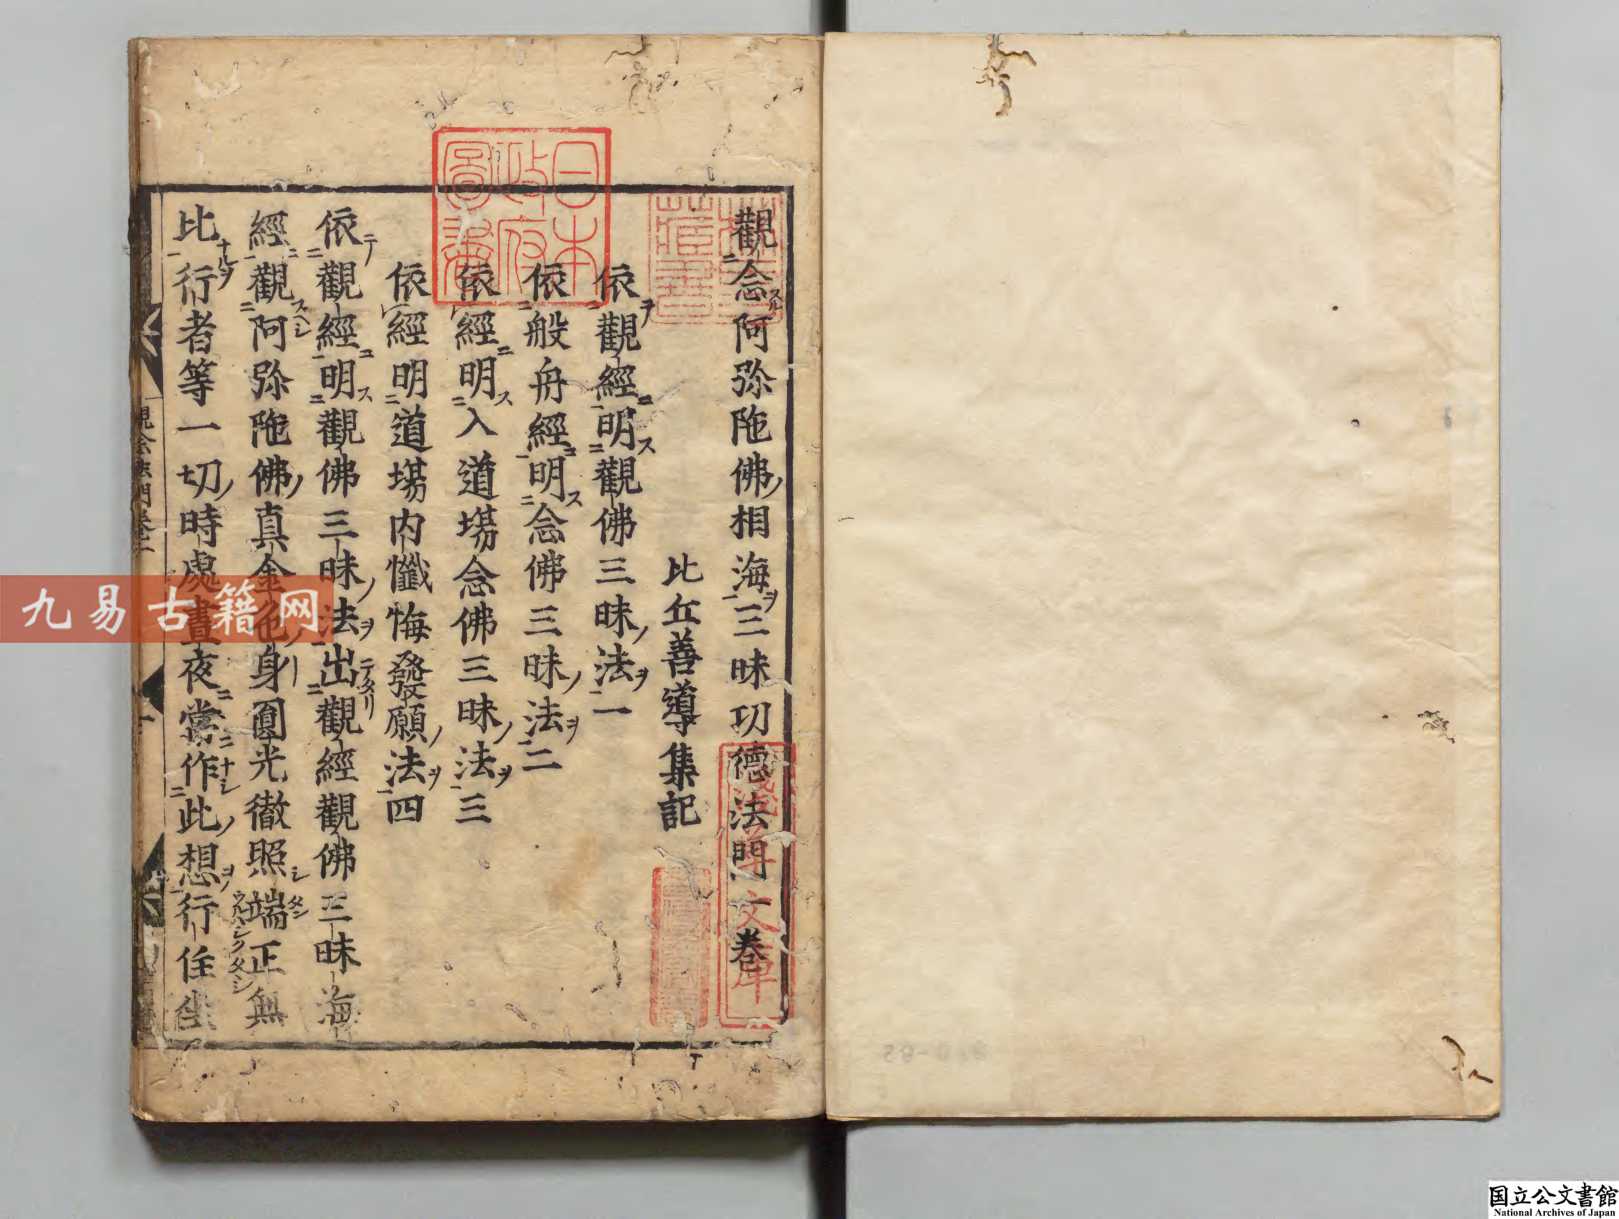 觀念阿弥陁佛相海三昧功德法門一卷
比丘善導集記
依觀經明觀佛三昧法一
依般舟經明念佛三昧法二
依經明入道場念佛三昧法三
依經明道場内懺悔發願法四
依觀經明觀佛三昧法出觀經觀佛三昧海
經觀阿弥陁佛真金色身圓光徹照端正無
比行者等一切時處晝夜常作此想行住坐
日本
政府
圖書
淺草文庫
九易古籍网
国立公文書館
National Archives of Japan